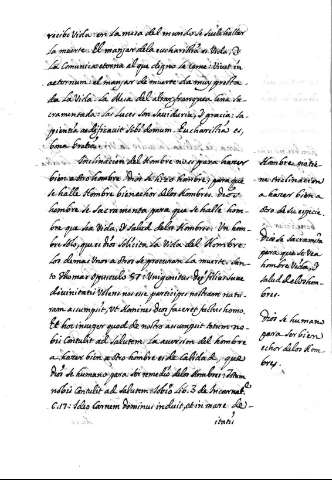 recibe Vida: en la mesa del mundo se suele hallar
la muerte. El manjar de la eucharistia es Vida, è
la Comunica eterna al que digno la come: Vivat in
aeternum: el manjar de muerte da muy
da la Vida: la Mesa del altar franquea Cena Sa-
cramentada: las luces son sabiduria, è gracia: sa-
pientia aedificavit sibi domum Eucharistia es,
bona gratia.
Inclinacion del hombre no es para hazer
bien a otro hombre: Dios se hizo hombre, para que
se halle hombre bienechor de los hombres: Dios
hombre se Sacramenta para que se halle hom-
bre que sea Vida, è Salud de los hombres: Un hom-
bre solo, que es Dios solicita la Vida del hombre:
los demas Unos a otros se procuran la muerte. Santo
Thomas Opusculo 57: Unigenitus Dei filius suae
divinitatis Volens nos esse participes nostram natu-
ram assumpsit, Ut homines Deos faceret factus homo.
Et hoc insuper quod de nostro assumpsit totum no-
bis Contulit ad Salutem. La aversion del hombre
a hazer bien a otro hombre es de Calidad, que
Dios se humanò para ser remedio de los hombres: totum
nobis Contulit ad Salutem: Lib. 3 de Incarnat.
C. 17: Ideo Carnem dominus induit, et in mare
itatis
Hombre no tie-
ne inclinacion
a hazer bien a
otro de su especie.
Dios se sacramenta
para que se vea
hombre Vida, è
salud de los hom-
bres.
Dios se humanò
para ser bien
echor de los hom-
bres.